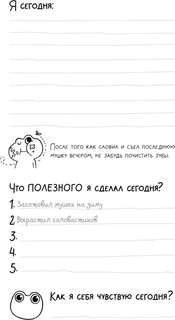 Я сегодня:
После того как словил и съел последнюю
мушку вечером, не забудь почистить зубы.
Что ПОЛЕЗНОГО я сделал сегодня?
1. Заготовил мушек на зиму
2. Вырастил головастиков
3.
4.
5.
Как я себя чувствую сегодня?